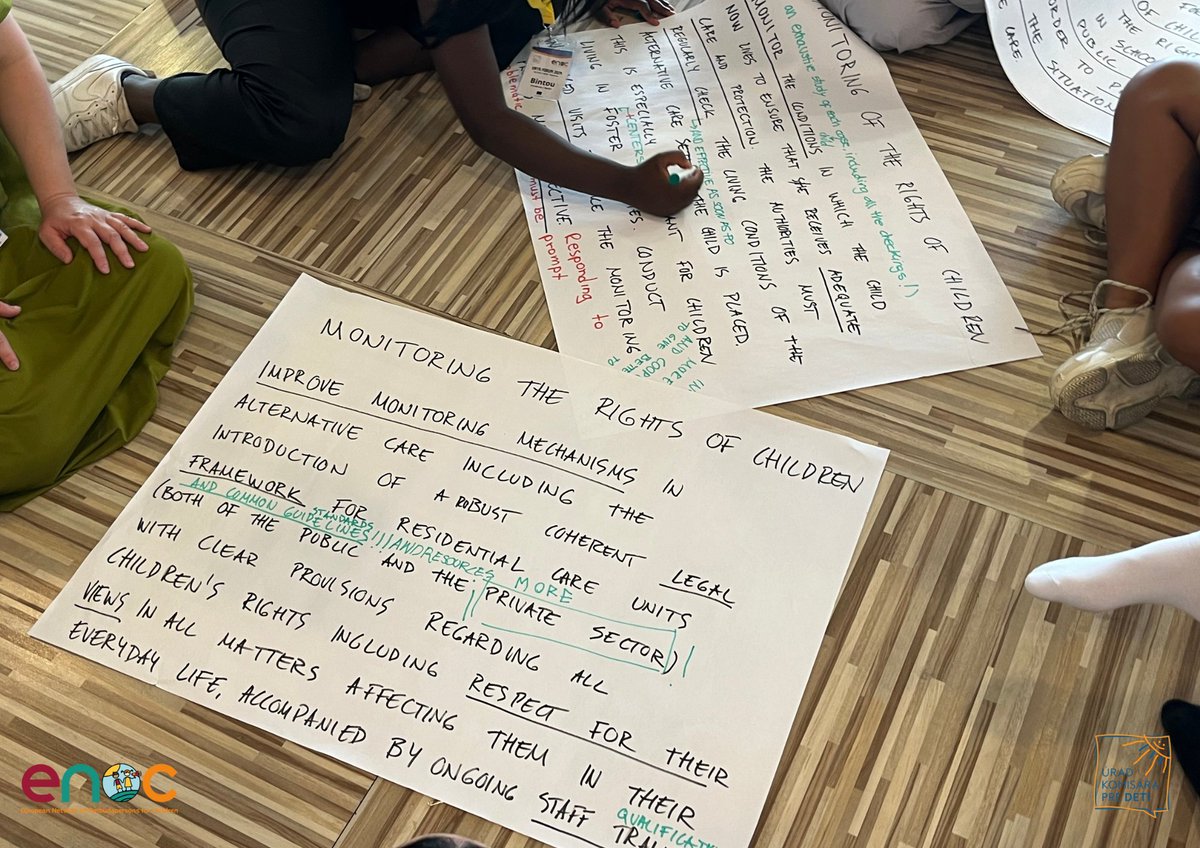 MONITORING THE RIGHTS OF CHILDREN
IMPROVE MONITORING MECHANISMS IN
ALTERNATIVE CARE INCLUDING THE
INTRODUCTION OF A ROBUST COHERENT LEGAL
FRAMEWORK FOR RESIDENTIAL CARE UNITS
STANDARDS
AND COMMON GUIDELINES!!! AND RESOURCES MORE
(BOTH OF THE PUBLIC AND THE PRIVATE SECTOR)
WITH CLEAR PROVISIONS REGARDING ALL
CHILDREN'S RIGHTS INCLUDING RESPECT FOR THEIR
VIEWS IN ALL MATTERS AFFECTING THEM IN THEIR
EVERYDAY LIFE, ACCOMPANIED BY ONGOING STAFF
MONITORING OF THE RIGHTS OF CHILDREN
an exhaustive study of each case, including all the checkings!)
MONITOR THE CONDITIONS IN WHICH THE CHILD
NOW LIVES TO ENSURE THAT SHE RECEIVES ADEQUATE
CARE AND PROTECTION. THE AUTHORITIES MUST
REGULARLY CHECK THE LIVING CONDITIONS OF THE
AND EFFECTIVE AS SOON AS TO
ALTERNATIVE CARE THE CHILD IS PLACED.
THIS IS ESPECIALLY FOR CHILDREN
CENTERS
LIVING IN FOSTER CONDUCT
VISITS THE MONITORING
Responding to
must be prompt
AND MORE
TO GIVE BETTER
OF CHILD
THE RIGH
IN PUBLIC SCHOO
ORDER TO P
THE SITUATION
CARE.
enoc
Bintou
enoc
European Network of Ombudspersons for Children
ÚRAD
KOMISÁRA
PRE DETI